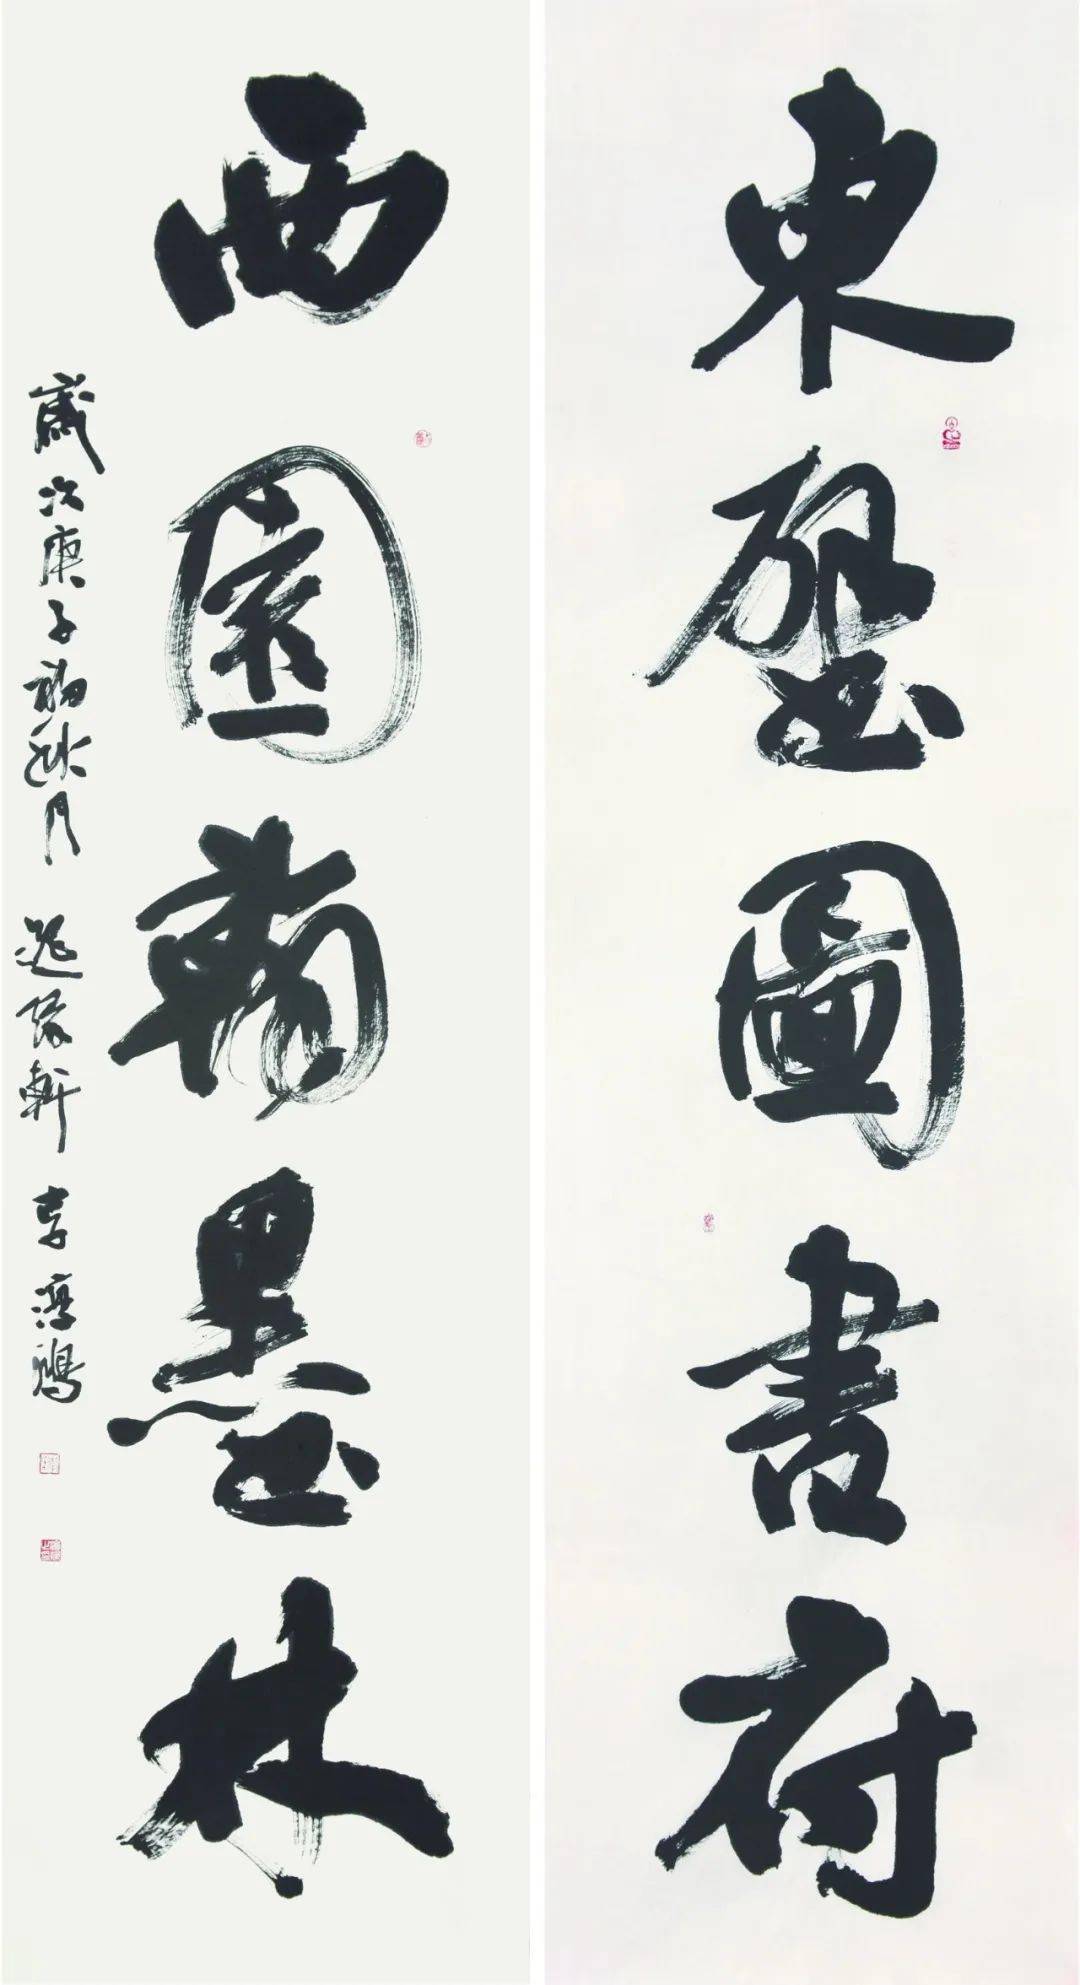 東壁圖書府
西園翰墨林
歲次庚子初秋月 軒 李